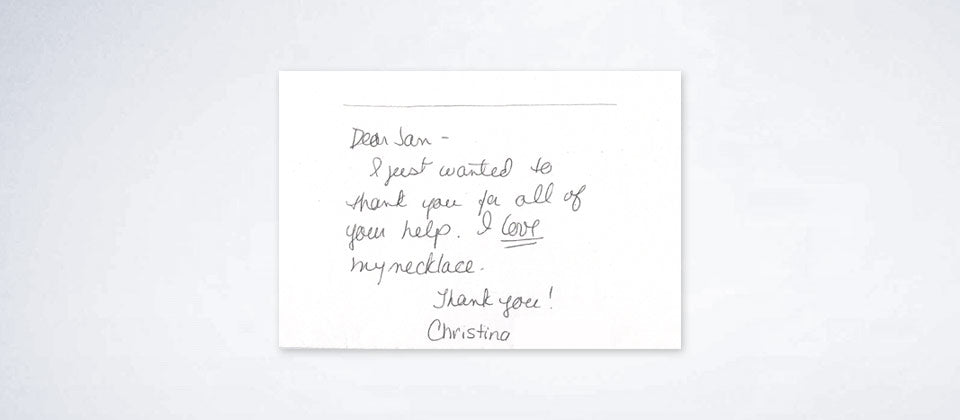 Dear Jan -
I just wanted to
thank you for all of
your help. I love
my necklace.
Thank you!
Christina